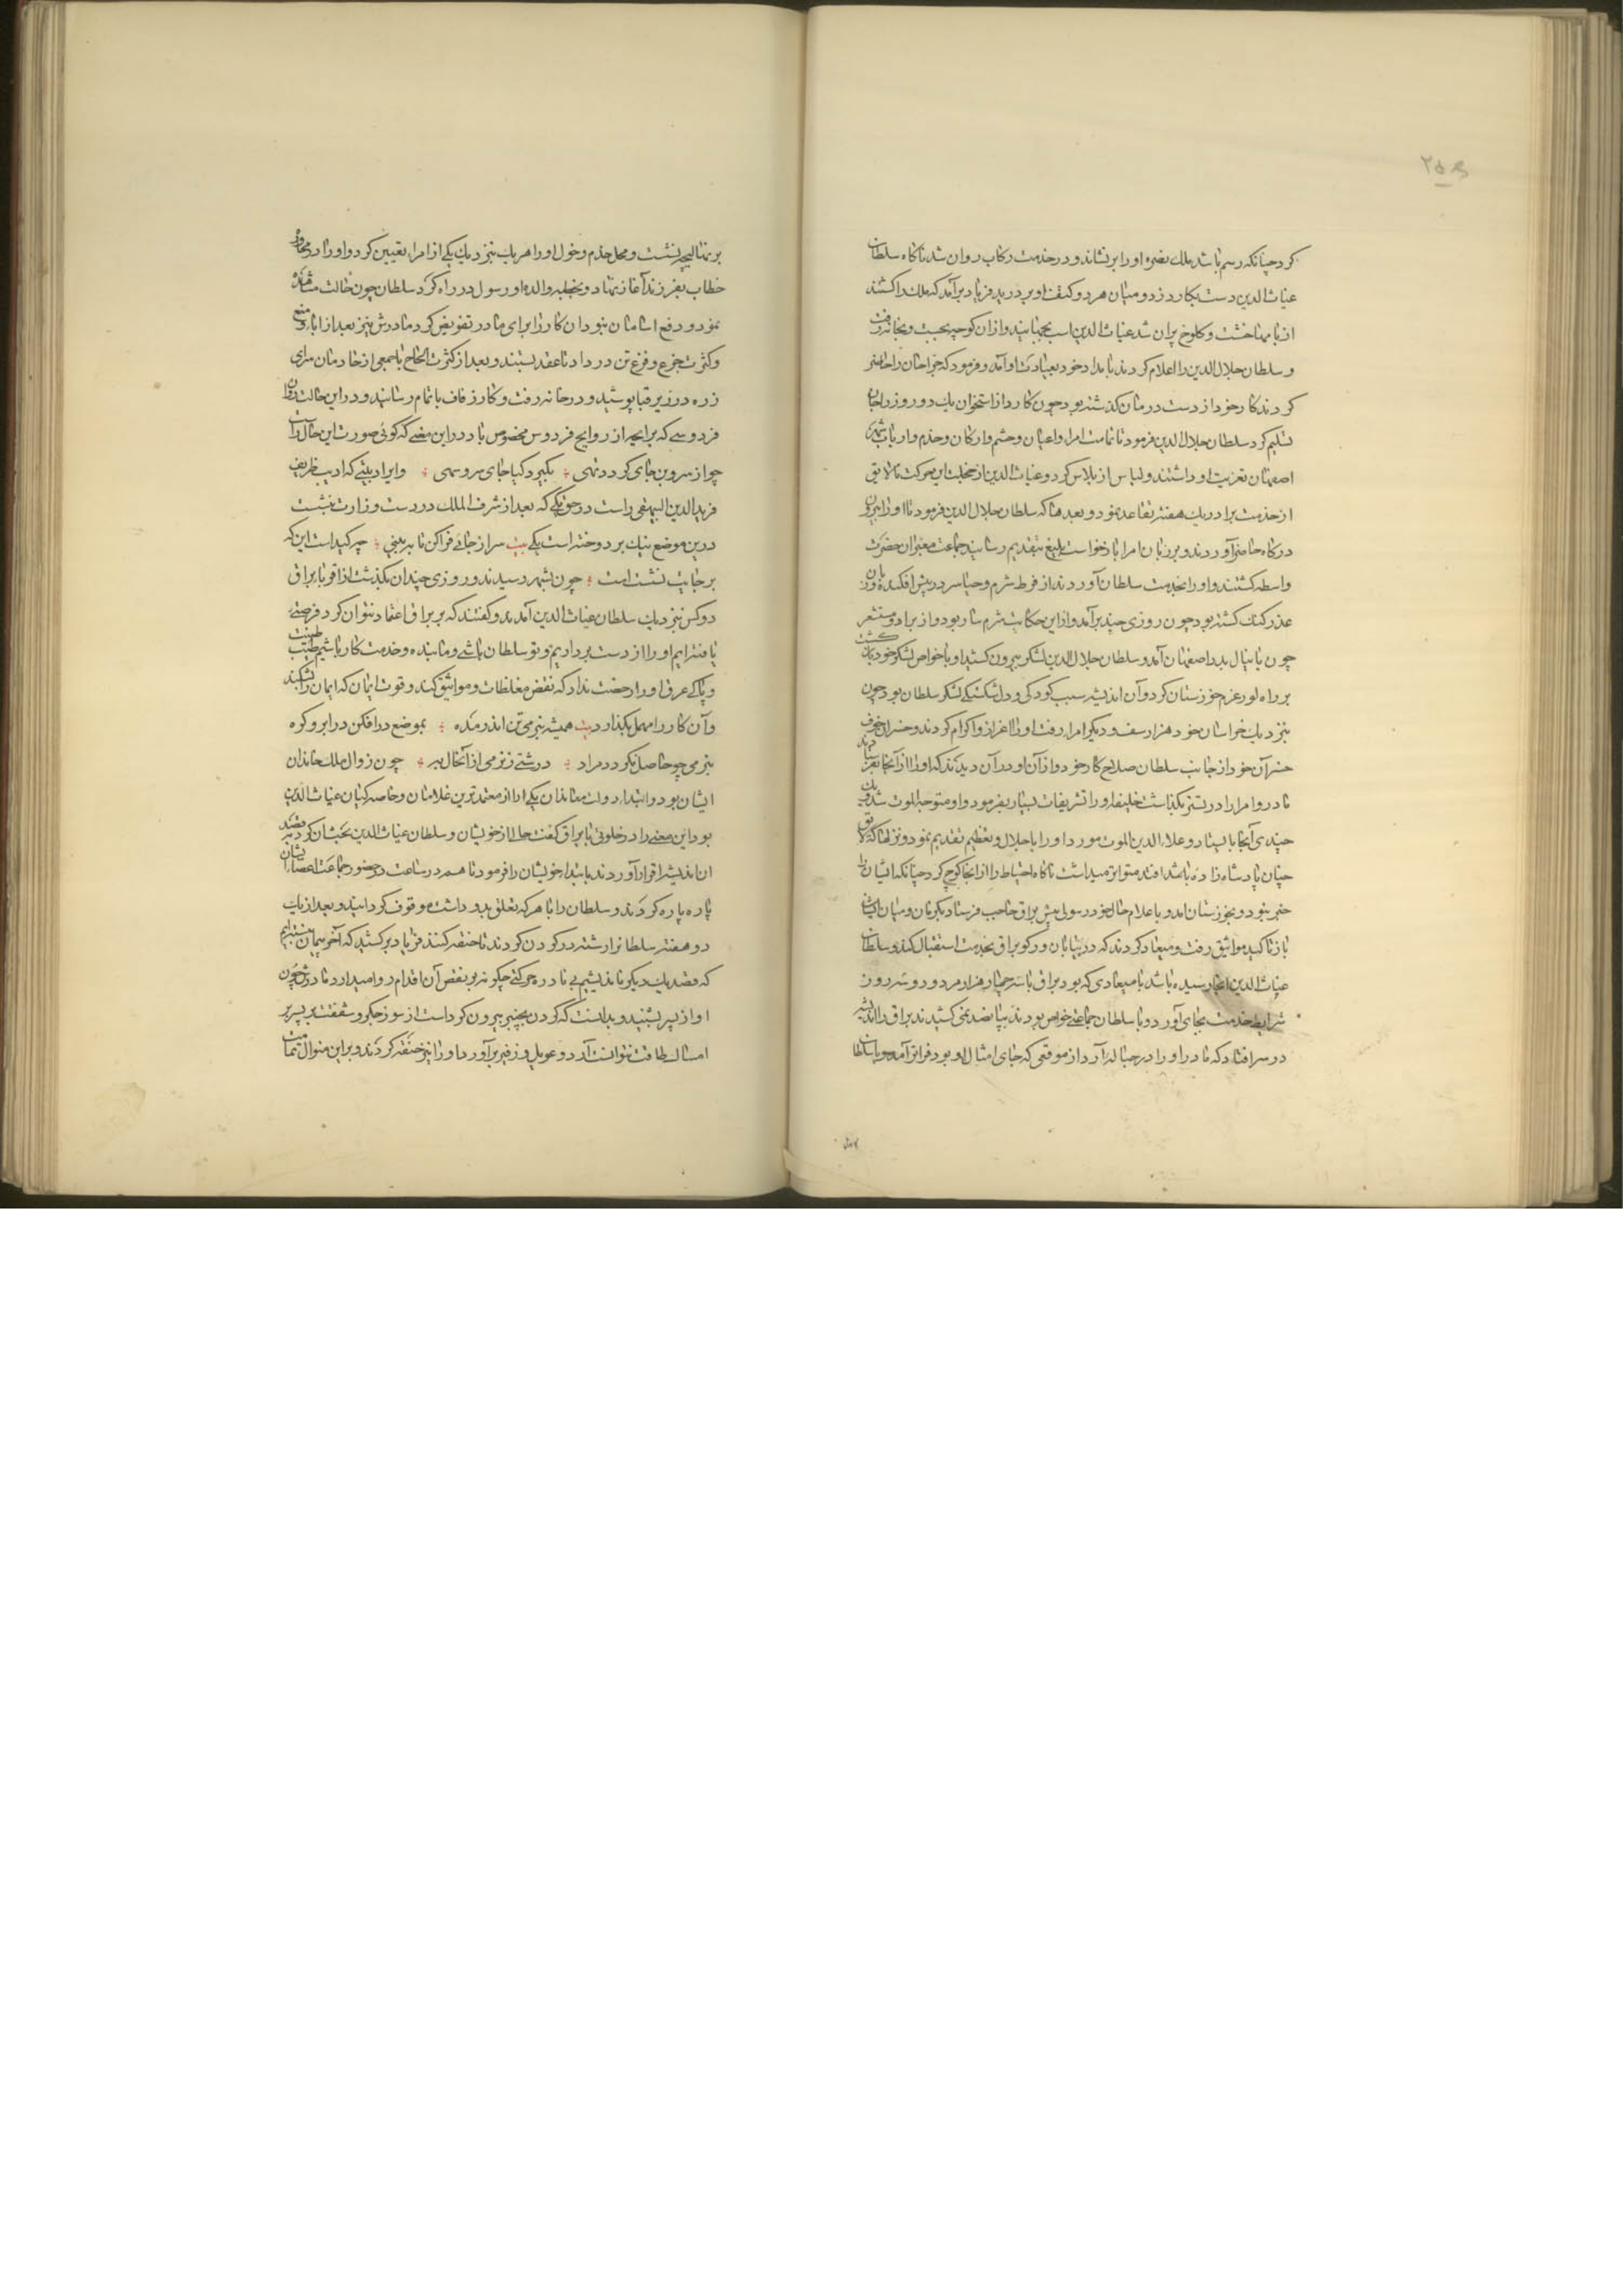 ۲۵۹
کرد چنانکه رسم باشد ملک نصره او را برنشاند و در خدمت رکاب روان شد ناگاه سلطان
غیاث الدین دست بکارد زد و میان هر دو کتف او بر درید فریاد برآمد که ملک را کشتند
از بامها خشت و کلوخ پران شد غیاث الدین اسب بجهانید و از آن کوچه بجست و بخانه رفت
و سلطان جلال الدین را اعلام کردند بامداد خود بعیادت او آمد و فرمود که جراحان را حاضر
کردند کار خود از دست درمان گذشته بود چون کارد از استخوان یک دو روز را جان
تسلیم کرد سلطان جلال الدین فرمود تا تمامت امرا و اعیان و حشم و ارکان و خدم و ارباب شهر
اصفهان تعزیت او داشتند و لباس از پلاس کرد و غیاث الدین از خجلت این حرکت نالایق
از خدمت برادر یک هفته تقاعد نمود و بعد هذا که سلطان جلال الدین فرمود تا او را بیرون
درگاه حاضر آوردند و بر زبان امرا بازخواست بلیغ بتقدیم رسانید جماعت معتبران حضرت
واسطه گشتند و او را بخدمت سلطان آوردند از فرط شرم و حیا سر در پیش افکنده و زبان
عذر گنگ گشته بود چون روزی چند برآمد و از این حکایت شرم سار بود و از برادر مستشعر گشت
چون باینال بدر اصفهان آمد و سلطان جلال الدین لشکر بیرون کشید او با خواص لشکر خود بیک
بر راه لور عزم خوزستان کرد و آن اندیشه سبب کودکی و دل شکستگی لشکر سلطان بود چون
نزدیک خراسان خود هزارسف و دیگر امرا رفت او را اعزاز و اکرام کردند و خسران خوف
خسران خود از جانب سلطان صلاح کار خود و از آن او در آن دیدند که او را از آنجا بفرستادند
مادر و امرا را در تستر بگذاشت خلیفه او را تشریفات بسیار بفرمود و او متوجه الموت شد و یک
چندی آنجا بایستاد و علاء الدین الموت مورد او را باجلال و تعظیم تقدیم نمود و نزلها که لایق
چنان پادشاه زاده باشد افتد متواتر میداشت ناگاه احتیاط را از آنجا کوچ کرد چنانکه ایشان را
خبر نبود و بخوزستان آمد و باعلام حال خود رسولی پیش براق حاجب فرستاد بکرمان و میان ایشان
باز تأکید مواثیق رفت و میعاد کردند که در بیابان ورکو براق بخدمت استقبال کند و سلطان
غیاث الدین آنجا رسیده باشد بامیعادی که بود براق با سه چهار هزار مرد و رو سه روز
شرایط خدمت بجای آورد و با سلطان جماعتی خواص بودند بپانصد نمی کشیدند براق را اندیشه
در سر افتاد که مادر او را در حباله آرد از موقفی که جای امثال او بود فراتر آمد و با سلطان
بر نهالیچه بنشست و محل خدم و خول او را هر یک بنزدیک یکی از امرا تعیین کرد و او را در محاورت
خطاب بفرزند آغاز نهاد و بخطبه والده او رسول در راه کرد سلطان چون حالت مشاهده
نمود و دفع اسامان نبود آن کار را برای مادر تفویض کرد مادرش نیز بعد از ابا و منع
و کثرت جزع و فزع تن در داد تا عقد بستند و بعد از کثرت الحاح با جمعی از خادمان سرای
زره در زیر قبا پوشید و در خانه رفت و کار زفاف باتمام رسانید و در این حالت روان
فردوسی که برایحه از روایح فردوس مخصوص باد در این معنی که گوئی صورت این حال راست
چو از سروبن جای گردد تهی ؛ بگیرد گیا جای سرو سهی ؛ و ایراد بیتی که ادیب ظریف
فرید الدین البیهقی راست در حق یکی که بعد از شرف الملک در دست وزارت نشست
درین موضع نیک بر دوخته است یکی بیت سر از جائ فراکن تا ببینی ؛ چه کیداست این که
بر جایت نشستست ؛ چون بشهر رسیدند و روزی چندان بگذشت از اقربا براق
دو کس نزدیک سلطان غیاث الدین آمدند و گفتند که بر براق اعتماد نتوان کرد فرصتی
یافته ایم او را از دست برداریم و تو سلطان باشی و ما بنده و خدمت کار باشیم طیب طینت
و پاکی عرق او را رخصت نداد که نقض مغلظات و مواثیق کند و قوت ایمان که ایمان را بشکند
و آن کار را مهمل بگذارد بیت همیشه بنرمی تن اندر مده ؛ بموضع درافکن در ابرو گره
بنرمی چو حاصل نگردد مراد ؛ درشتی ز نرمی از آنحال به ؛ چون زوال ملک خاندان
ایشان بود و ابتداء دولت معاندان یکی را از معتمدترین غلامان و خاصه گیان غیاث الدین
بود این معنی را در خلوتی با براق گفت حالی از خویشان و سلطان غیاث الدین بحثشان کرد بقصد
آن اندیشه اقرار آوردند بابتدا خویشان را فرمود تا هم در ساعت در حضور جماعت اعضای ایشان
پاره پاره کردند و سلطان را با هر که تعلق بدو داشت موقوف گردانید و بعد از یک
دو هفته سلطان را رشته در گردن کردند تا خفه کنند فریاد برکشید که آخر پیمان بسته ایم
که قصد یکدیگر نیندیشیم بی نادره حرکتی چگونه بر نقض آن اقدام روا میدارد مادرش چون
آواز پسر بشنید و بدانست که گردن بچنبر بیرون کرداست از سوز جگر و شفقت بر پسر بر
امساک طاقت نتوانست آورد و عویل و زفیر برآورد او را نیز خفه کردند و بر این منوال تمامت